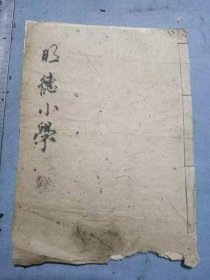 明德小學